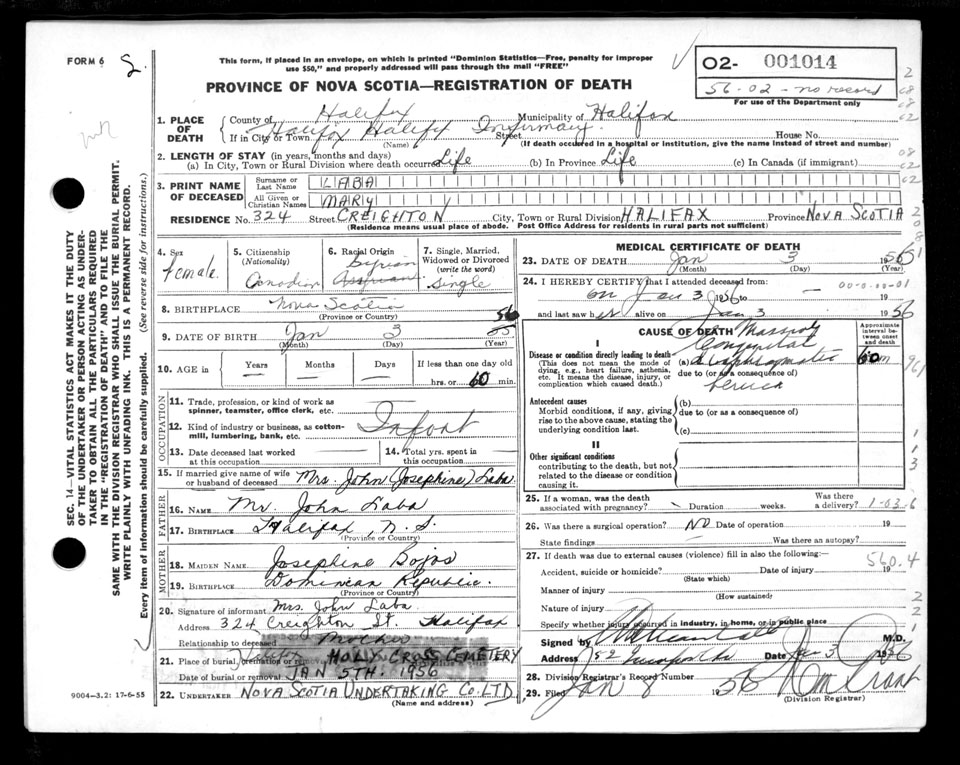 FORM 6
2.
This form, if placed in an envelope, on which is printed "Dominion Statistics—Free, penalty for improper
use $50," and properly addressed will pass through the mail "FREE"
PROVINCE OF NOVA SCOTIA—REGISTRATION OF DEATH
02- 001014
56-02-no record
For use of the Department only
1. PLACE OF DEATH
County of Halifax Municipality of Halifax
If in City or Town Halifax Halifax Infirmary Street House No.
(Name) (If death occurred in a hospital or institution, give the name instead of street and number)
2. LENGTH OF STAY (in years, months and days)
(a) In City, Town or Rural Division where death occurred Life (b) In Province Life (c) In Canada (if immigrant)
3. PRINT NAME OF DECEASED
Surname or Last Name LABA
All Given or Christian Names MARY
RESIDENCE No. 324 Street CREIGHTON City, Town or Rural Division HALIFAX Province NOVA SCOTIA
(Residence means usual place of abode. Post Office Address for residents in rural parts not sufficient)
4. Sex
Female
5. Citizenship
(Nationality)
Canadian
6. Racial Origin
Syrian
Assyrian
7. Single, Married, Widowed or Divorced
(write the word)
Single
8. BIRTHPLACE Nova Scotia
(Province or Country)
9. DATE OF BIRTH Jan 3 56 55
(Month) (Day) (Year)
10. AGE in Years Months Days If less than one day old
hrs. or 60 min.
OCCUPATION
11. Trade, profession, or kind of work as
spinner, teamster, office clerk, etc.
12. Kind of industry or business, as cotton-
mill, lumbering, bank, etc. Infant
13. Date deceased last worked
at this occupation
14. Total yrs. spent in
this occupation
15. If married give name of wife
or husband of deceased Mrs. John (Josephine) Laba
FATHER
16. NAME Mr. John Laba
17. BIRTHPLACE Halifax, N.S.
(Province or Country)
MOTHER
18. MAIDEN NAME Josephine Bojos
19. BIRTHPLACE Dominican Republic.
(Province or Country)
20. Signature of informant Mrs. John Laba
Address 324 Creighton St. Halifax
Relationship to deceased Mother
21. Place of burial, cremation or removal Halifax HOLY CROSS CEMETERY
Date of burial or removal JAN 5TH 1956
22. UNDERTAKER NOVA SCOTIA UNDERTAKING CO. LTD
(Name and address)
MEDICAL CERTIFICATE OF DEATH
23. DATE OF DEATH Jan 3 1956
(Month) (Day) (Year)
24. I HEREBY CERTIFY that I attended deceased from:
on Jan 3 1956 to 19
and last saw her alive on Jan 3 1956
CAUSE OF DEATH
Approximate interval between onset and death
I
Disease or condition directly leading to death
(This does not mean the mode of dying, e.g., heart failure, asthenia, etc. It means the disease, injury, or complication which caused death.)
Massive
Congenital
(a) diaphragmatic
due to (or as a consequence of)
hernia
60 m
Antecedent causes
Morbid conditions, if any, giving rise to the above cause, stating the underlying condition last.
(b)
due to (or as a consequence of)
(c)
II
Other significant conditions
contributing to the death, but not related to the disease or condition causing it.
25. If a woman, was the death associated with pregnancy? Duration weeks. Was there a delivery?
26. Was there a surgical operation? NO Date of operation 19
State findings Was there an autopsy?
27. If death was due to external causes (violence) fill in also the following:—
Accident, suicide or homicide? Date of injury 19
(State which)
560.4
Manner of injury
(How sustained)
Nature of injury
Specify whether injury occurred in industry, in home, or in public place
Signed by M.D.
Address Date Jan 3 1956
28. Division Registrar's Record Number
29. Filed Jan 8 1956 Wm Grant
(Division Registrar)
SEC. 14—VITAL STATISTICS ACT MAKES IT THE DUTY
OF THE UNDERTAKER OR PERSON ACTING AS UNDER-
TAKER TO OBTAIN ALL THE PARTICULARS REQUIRED
IN THE "REGISTRATION OF DEATH" AND TO FILE THE
SAME WITH THE DIVISION REGISTRAR WHO SHALL ISSUE THE BURIAL PERMIT.
WRITE PLAINLY WITH UNFADING INK. THIS IS A PERMANENT RECORD.
Every item of information should be carefully supplied. (See reverse side for instructions.)
9004-3.2: 17-6-55